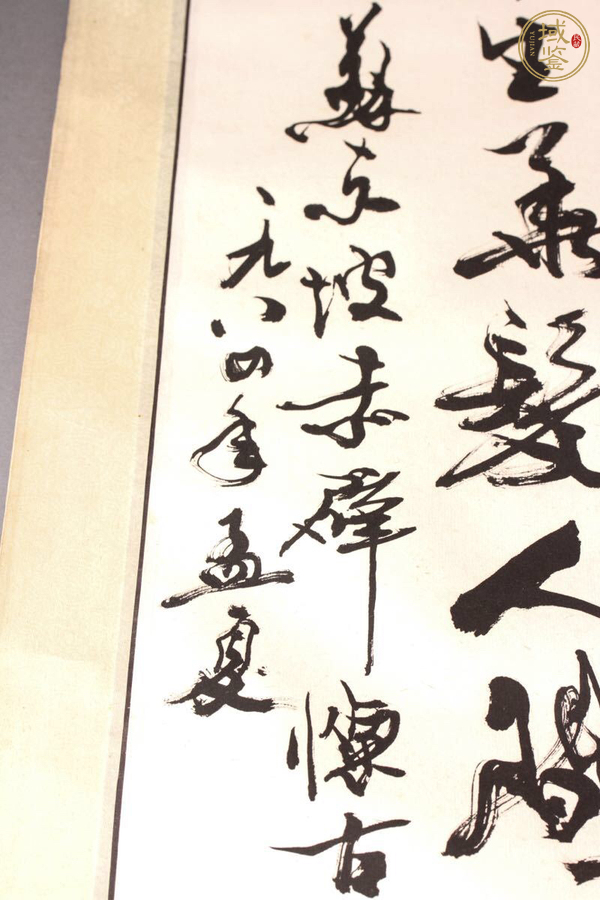 生華髮人間
蘇東坡赤壁懷古
一九八四年孟夏
域鉴
YUJIAN